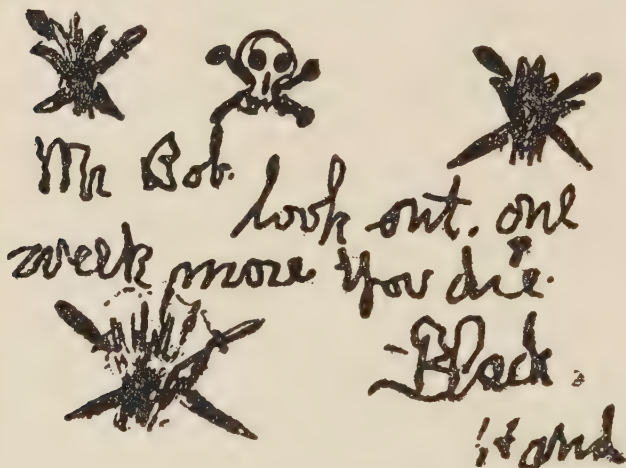 Mr Bob.
look out. one
week more you die.
Black.
Hand